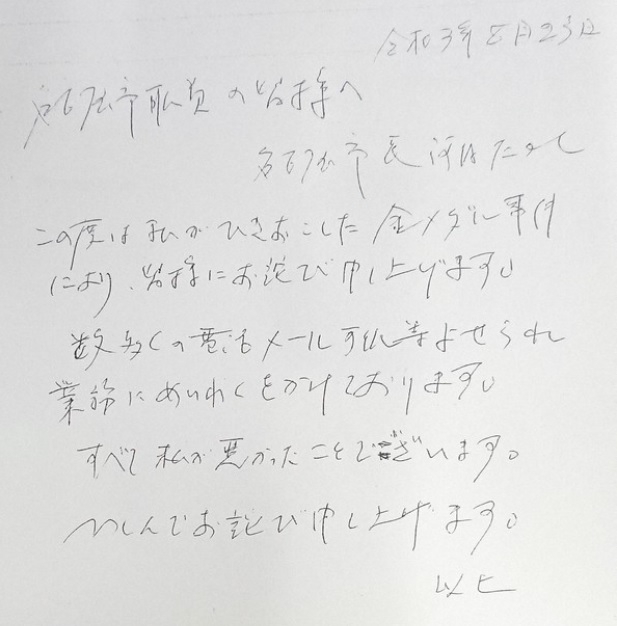 令和3年8月23日
名古屋市職員の皆様へ
名古屋市長 河村たかし
この度は私がひきおこした金メダル事件
により、皆様にお詫び申し上げます。
数多くの電話メール手紙等よせられ
業務にめいわくをかけております。
すべて私が悪かったことでございます。
つつしんでお詫び申し上げます。
以上